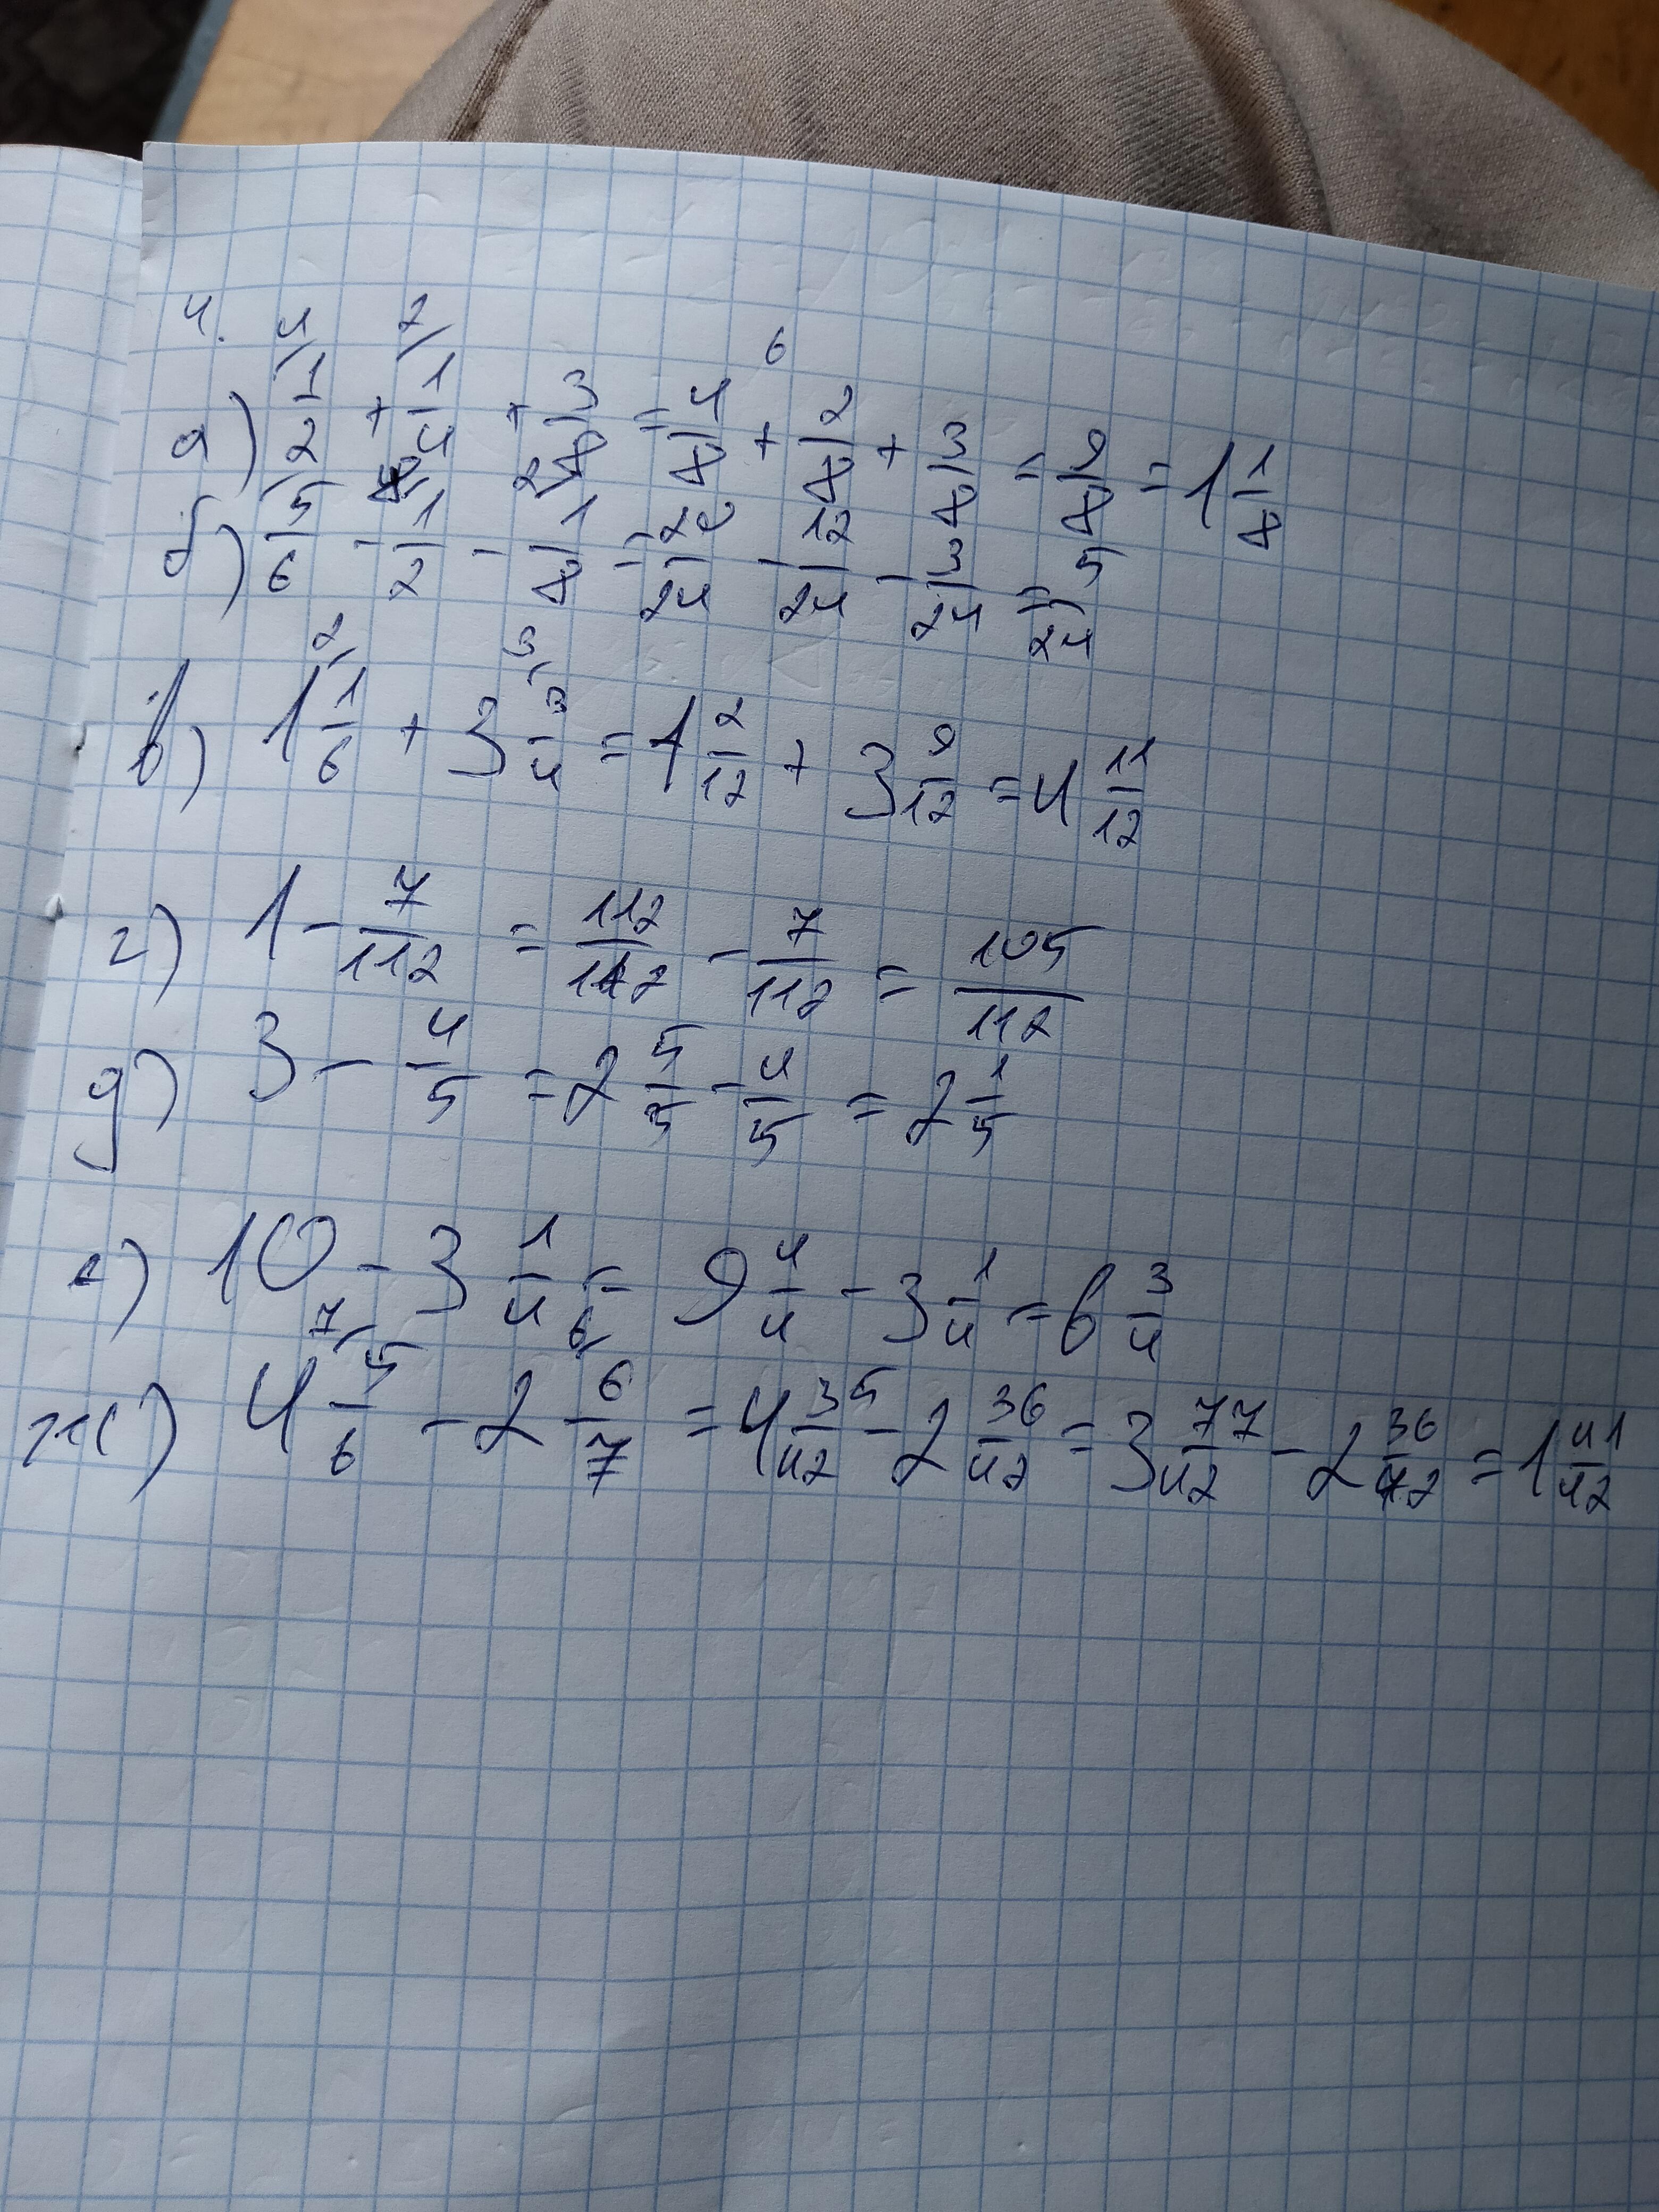 4.
а) 4/ 1/2 + 2/ 1/4 + 3/8 = 4/8 + 2/8 + 3/8 = 9/8 = 1 1/8
б) 5/6 - 1/2 - 1/8 = 20/24 - 12/24 - 3/24 = 5/24
в) 2/ 1 1/6 + 3/ 3 3/4 = 1 2/12 + 3 9/12 = 4 11/12
г) 1 - 7/112 = 112/112 - 7/112 = 105/112
д) 3 - 4/5 = 2 5/5 - 4/5 = 2 1/5
е) 10 - 3 1/4 = 9 4/4 - 3 1/4 = 6 3/4
ж) 7/ 4 5/6 - 6/ 2 6/7 = 4 35/42 - 2 36/42 = 3 77/42 - 2 36/42 = 1 41/42